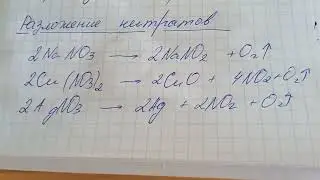 Разложение нитратов
2NaNO3 → 2NaNO2 + O2↑
2Cu(NO3)2 → 2CuO + 4NO2+O2↑
2AgNO3 → 2Ag + 2NO2 + O2↑